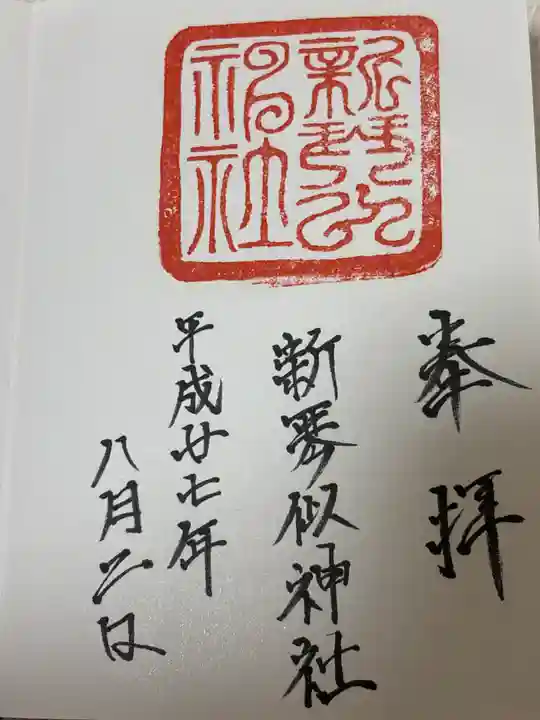 新琴似
神社
奉拝
新琴似神社
平成廿七年
八月二日